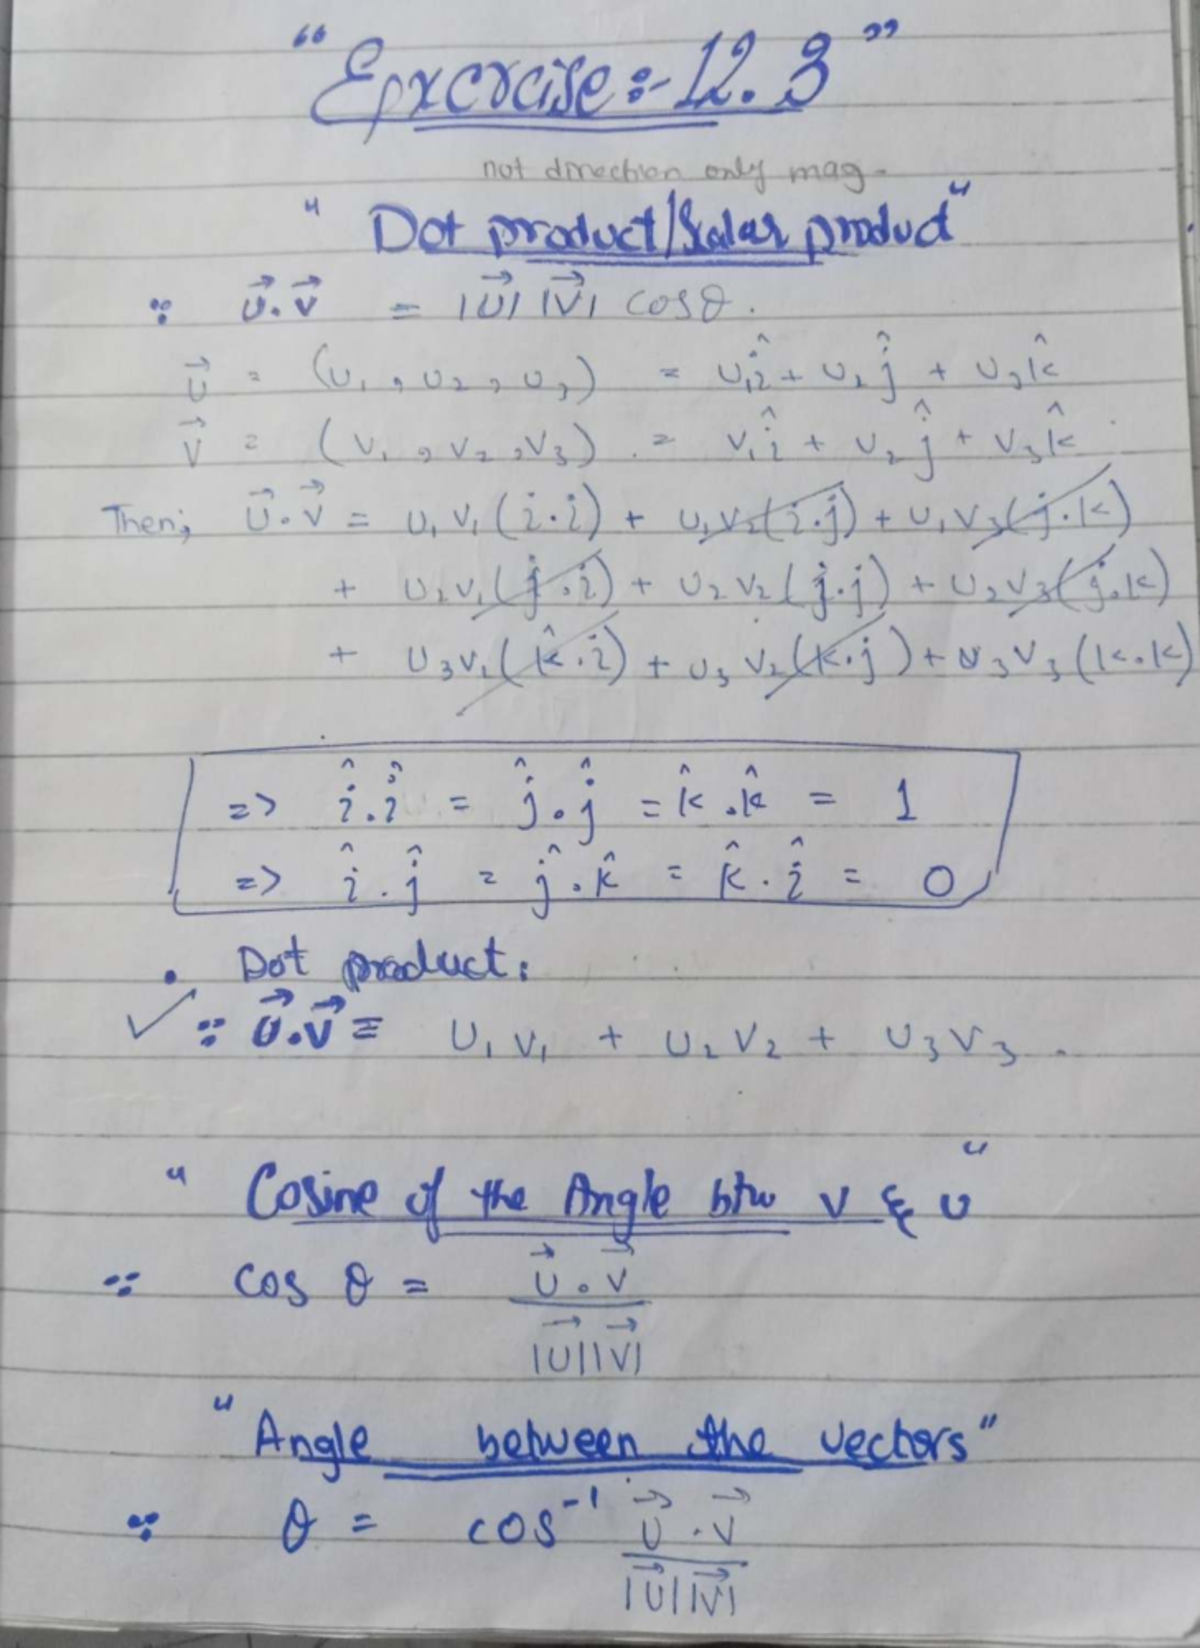 “Exercise:-12.3”
not direction only mag.
"Dot product/Scalar product"
∵ U⃗.V⃗ = |U⃗| |V⃗| cosθ.
U⃗ = (U₁, U₂, U₃) = U₁î + U₂ĵ + U₃k̂
V⃗ = (V₁, V₂, V₃) . = V₁î + V₂ĵ + V₃k̂
Then; U⃗.V⃗ = U₁V₁(i.i) + U₁V₂(i.j) + U₁V₃(j.k)
+ U₂V₁(j.i) + U₂V₂(j.j) + U₂V₃(j.k)
+ U₃V₁(k̂.i) + U₃V₂(k.j) + U₃V₃(k.k)
=> î.î = ĵ.ĵ = k̂.k̂ = 1
=> î.ĵ = ĵ.k̂ = k̂.î = 0
• Dot product:
✓ ∵ U⃗.V⃗ = U₁V₁ + U₂V₂ + U₃V₃.
"Cosine of the Angle btw V & U"
∵ cos θ = U⃗.V⃗
|U⃗||V⃗|
"Angle between the vectors"
∵ θ = cos⁻¹ U⃗.V⃗
|U⃗||V⃗|